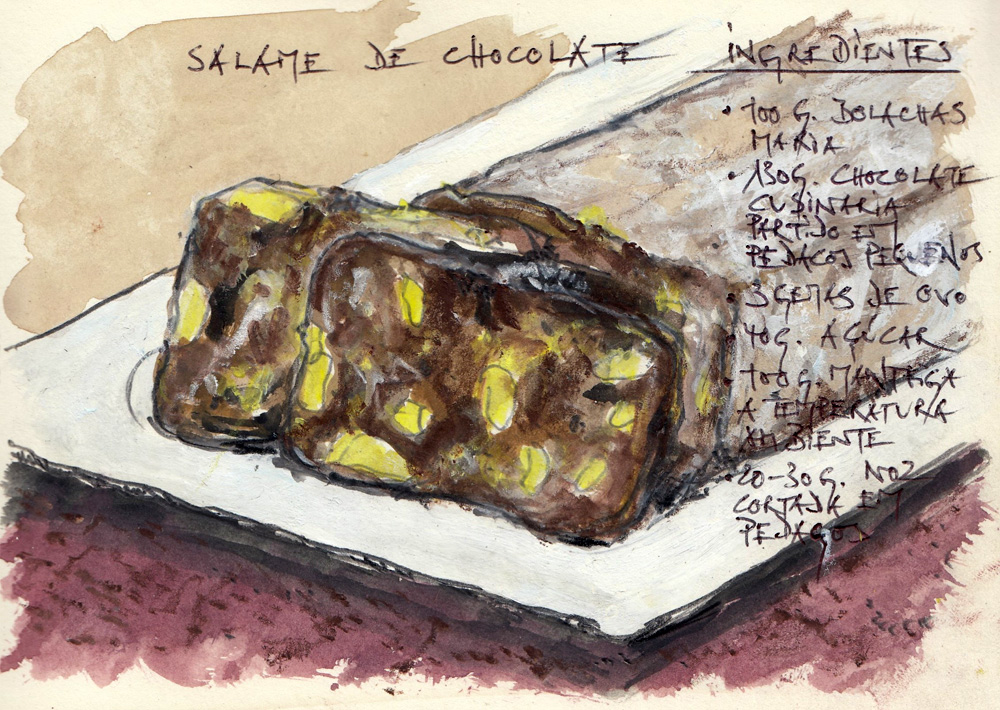 SALAME DE CHOCOLATE
INGREDIENTES
• 100 G. BOLACHAS
MARIA
• 130G. CHOCOLATE
CUSINARIA
PARTIDO EM
PEDAÇOS PEQUENOS
• 3 GEMAS DE OVO
• 40G. AÇUCAR
• 100G. MANTEIGA
A TEMPERATURA
AMBIENTE
• 20-30G. NOZ
CORTADA EM
PEDAÇOS